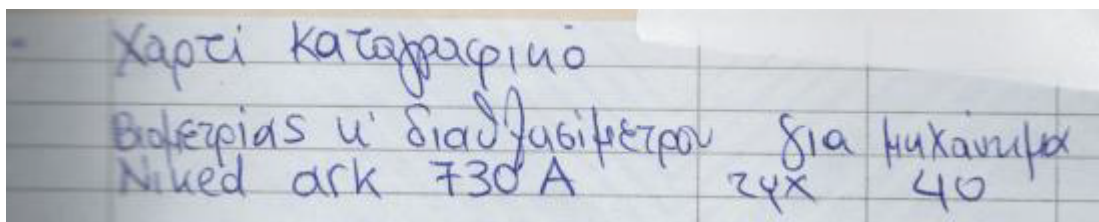 Χαρτί καταγραφικό
Βιομετρίας κ' διαθλασίμετρου για μηχάνημα
Niked ark 730 A τμχ 40